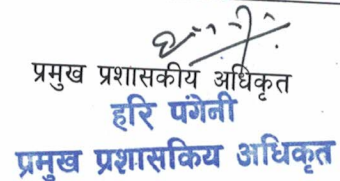 प्रमुख प्रशासकीय अधिकृत
हरि पंगेनी
प्रमुख प्रशासकिय अधिकृत